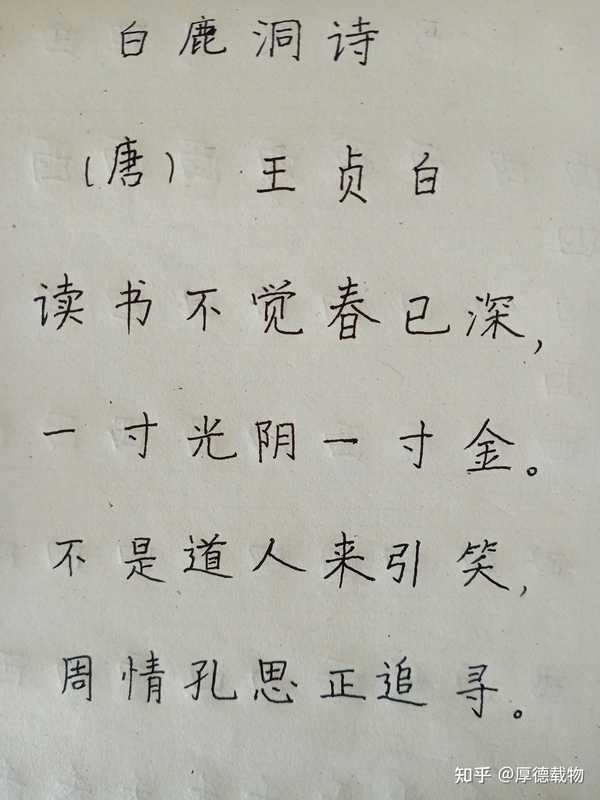 白鹿洞诗
（唐） 王贞白
读书不觉春已深，
一寸光阴一寸金。
不是道人来引笑，
周情孔思正追寻。
知乎 @厚德载物